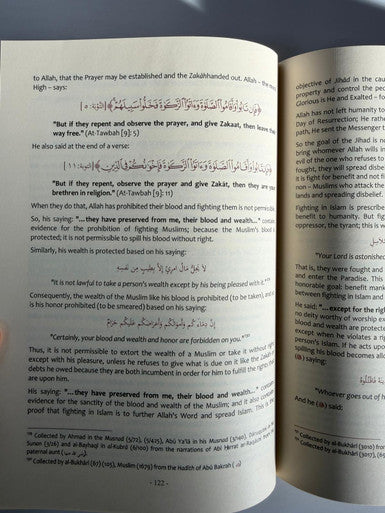 to Allah, that the Prayer may be established and the Zakāh handed out. Allah – the Most
High – says:
﴿فَإِن تَابُوا۟ وَأَقَامُوا۟ ٱلصَّلَوٰةَ وَءَاتَوُا۟ ٱلزَّكَوٰةَ فَخَلُّوا۟ سَبِيلَهُمْ﴾ [التوبة: ٥]
"But if they repent and observe the prayer, and give Zakaat, then leave their
way free." (At-Tawbah [9]: 5)
He also said at the end of a verse:
﴿فَإِن تَابُوا۟ وَأَقَامُوا۟ ٱلصَّلَوٰةَ وَءَاتَوُا۟ ٱلزَّكَوٰةَ فَإِخْوَٰنُكُمْ فِى ٱلدِّينِ﴾ [التوبة: ١١]
"But if they repent, observe the prayer and give Zakāt, then they are your
brethren in religion." (At-Tawbah [9]: 11)
When they do that, Allah has prohibited their blood and fighting them is not permissible.
So, his saying: "...they have preserved from me, their blood and wealth..." contains
evidence for the prohibition of fighting Muslims; because the Muslim's blood is
protected; it is not permissible to spill his blood without right.
Similarly, his wealth is protected based on his saying:
لا يحل مال امرئ إلا بطيب من نفسه
"It is not lawful to take a person's wealth except by his being pleased with it."¹⁹⁶
Consequently, the wealth of the Muslim like his blood is prohibited (to be taken), and so
is his honor prohibited (to be smeared) based on his saying:
إن دماءكم وأموالكم وأعراضكم عليكم حرام
"Certainly, your blood and wealth and honor are forbidden on you."¹⁹⁷
Thus, it is not permissible to extort the wealth of a Muslim or take it without right
except with his pleasure, unless he refuses to give what is due on it like the Zakāh or
debts he owed because they are both incumbent on him to fulfill the rights that
are upon him.
His saying: "...they have preserved from me, their blood and wealth..." contains
evidence for the sanctity of the blood and wealth of the Muslim; and it also contains
proof that fighting in Islam is to further Allah's Word and spread Islam. This is the
Collected by Ahmad in the Musnad (5/72), (5/425), Abū Ya'lā in his Musnad (3/140),
Sunan (3/26) and al-Bayhaqī in al-Kubrā (6/100) from the narrations of Abī Herrat ar-Raqāshī from
paternal aunt
¹⁹⁷ Collected by al-Bukhārī (67) (105), Muslim (1679) from the Hadīth of Abū Bakrah
- 122 -
objective of Jihād in the cause
property and control the people
Glorious is He and Exalted – for
Allah has not left humanity to
Day of Resurrection; He rather
path, He sent the Messenger
So the goal of the Jihad is not
bring whomever Allah wills in
evil of the one who refuses to
fought, they will spread disbelief
It is fight for benefit and not for
– Muslims attack the
lands and spread disbelief.
Fighting in Islam is prescribed
benefit to humanity. But fighting
oppressor, the tyrant; this is
"Your Lord is astonished
That is, they were fought and
and enter the Paradise. This
honorable goal: benefit mankind
between fighting in Islam and
He said: "...except for the right
no deity worthy of worship except
blood and wealth are protected
except when he violates a right
person's Islam. If he acts upon
spilling his blood becomes allowed
"Whoever goes out of his
And he (ﷺ) said:
Collected by al-Bukhārī (3010) from
Collected by al-Bukhārī